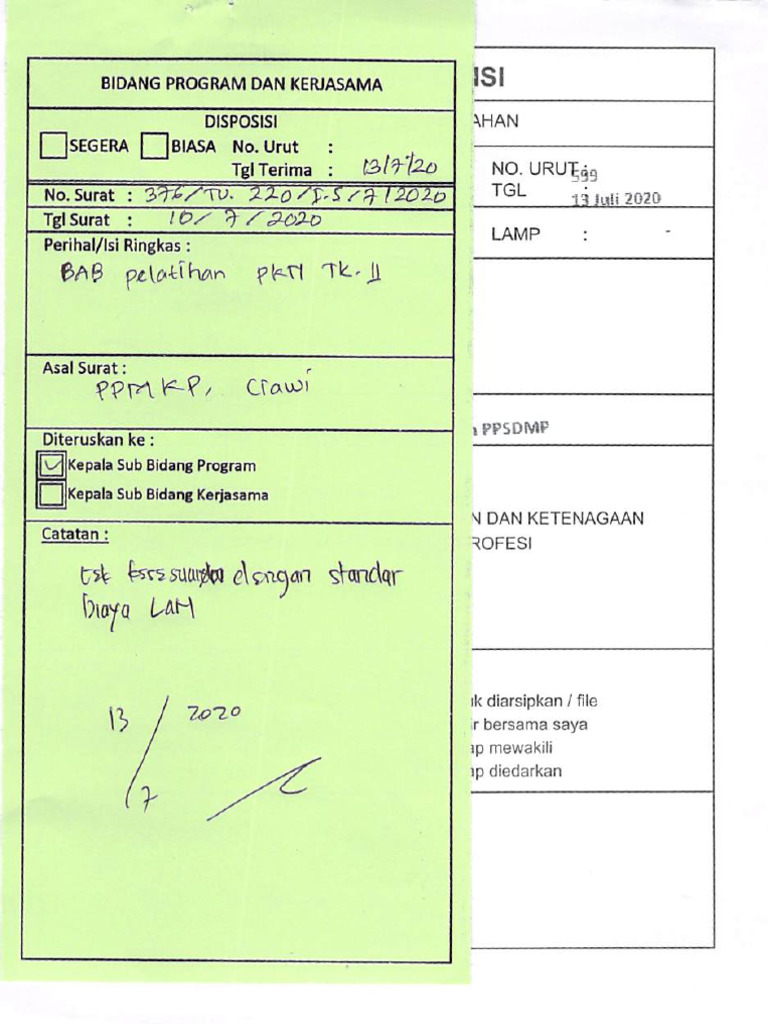 BIDANG PROGRAM DAN KERJASAMA
DISPOSISI
SEGERA BIASA No. Urut :
Tgl Terima : 13/7/20
No. Surat : 376/TU. 220/I.5/7/2020
Tgl Surat : 10/7/2020
Perihal/Isi Ringkas :
BAB pelatihan PKM TK. II
Asal Surat :
PPMKP, Ciawi
Diteruskan ke :
Kepala Sub Bidang Program
Kepala Sub Bidang Kerjasama
Catatan :
dengan standar
biaya LAN
13/7 2020
ISI
AHAN
NO. URUT : 599
TGL : 13 Juli 2020
LAMP : -
PPSDMP
N DAN KETENAGAAN
ROFESI
k diarsipkan / file
ir bersama saya
ap mewakili
ap diedarkan